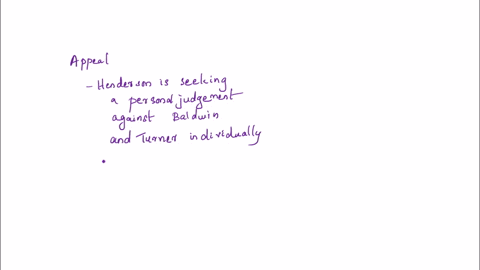 Appeal
- Henderson is seeking
a personal judgement
against Baldwin
and Turner individually